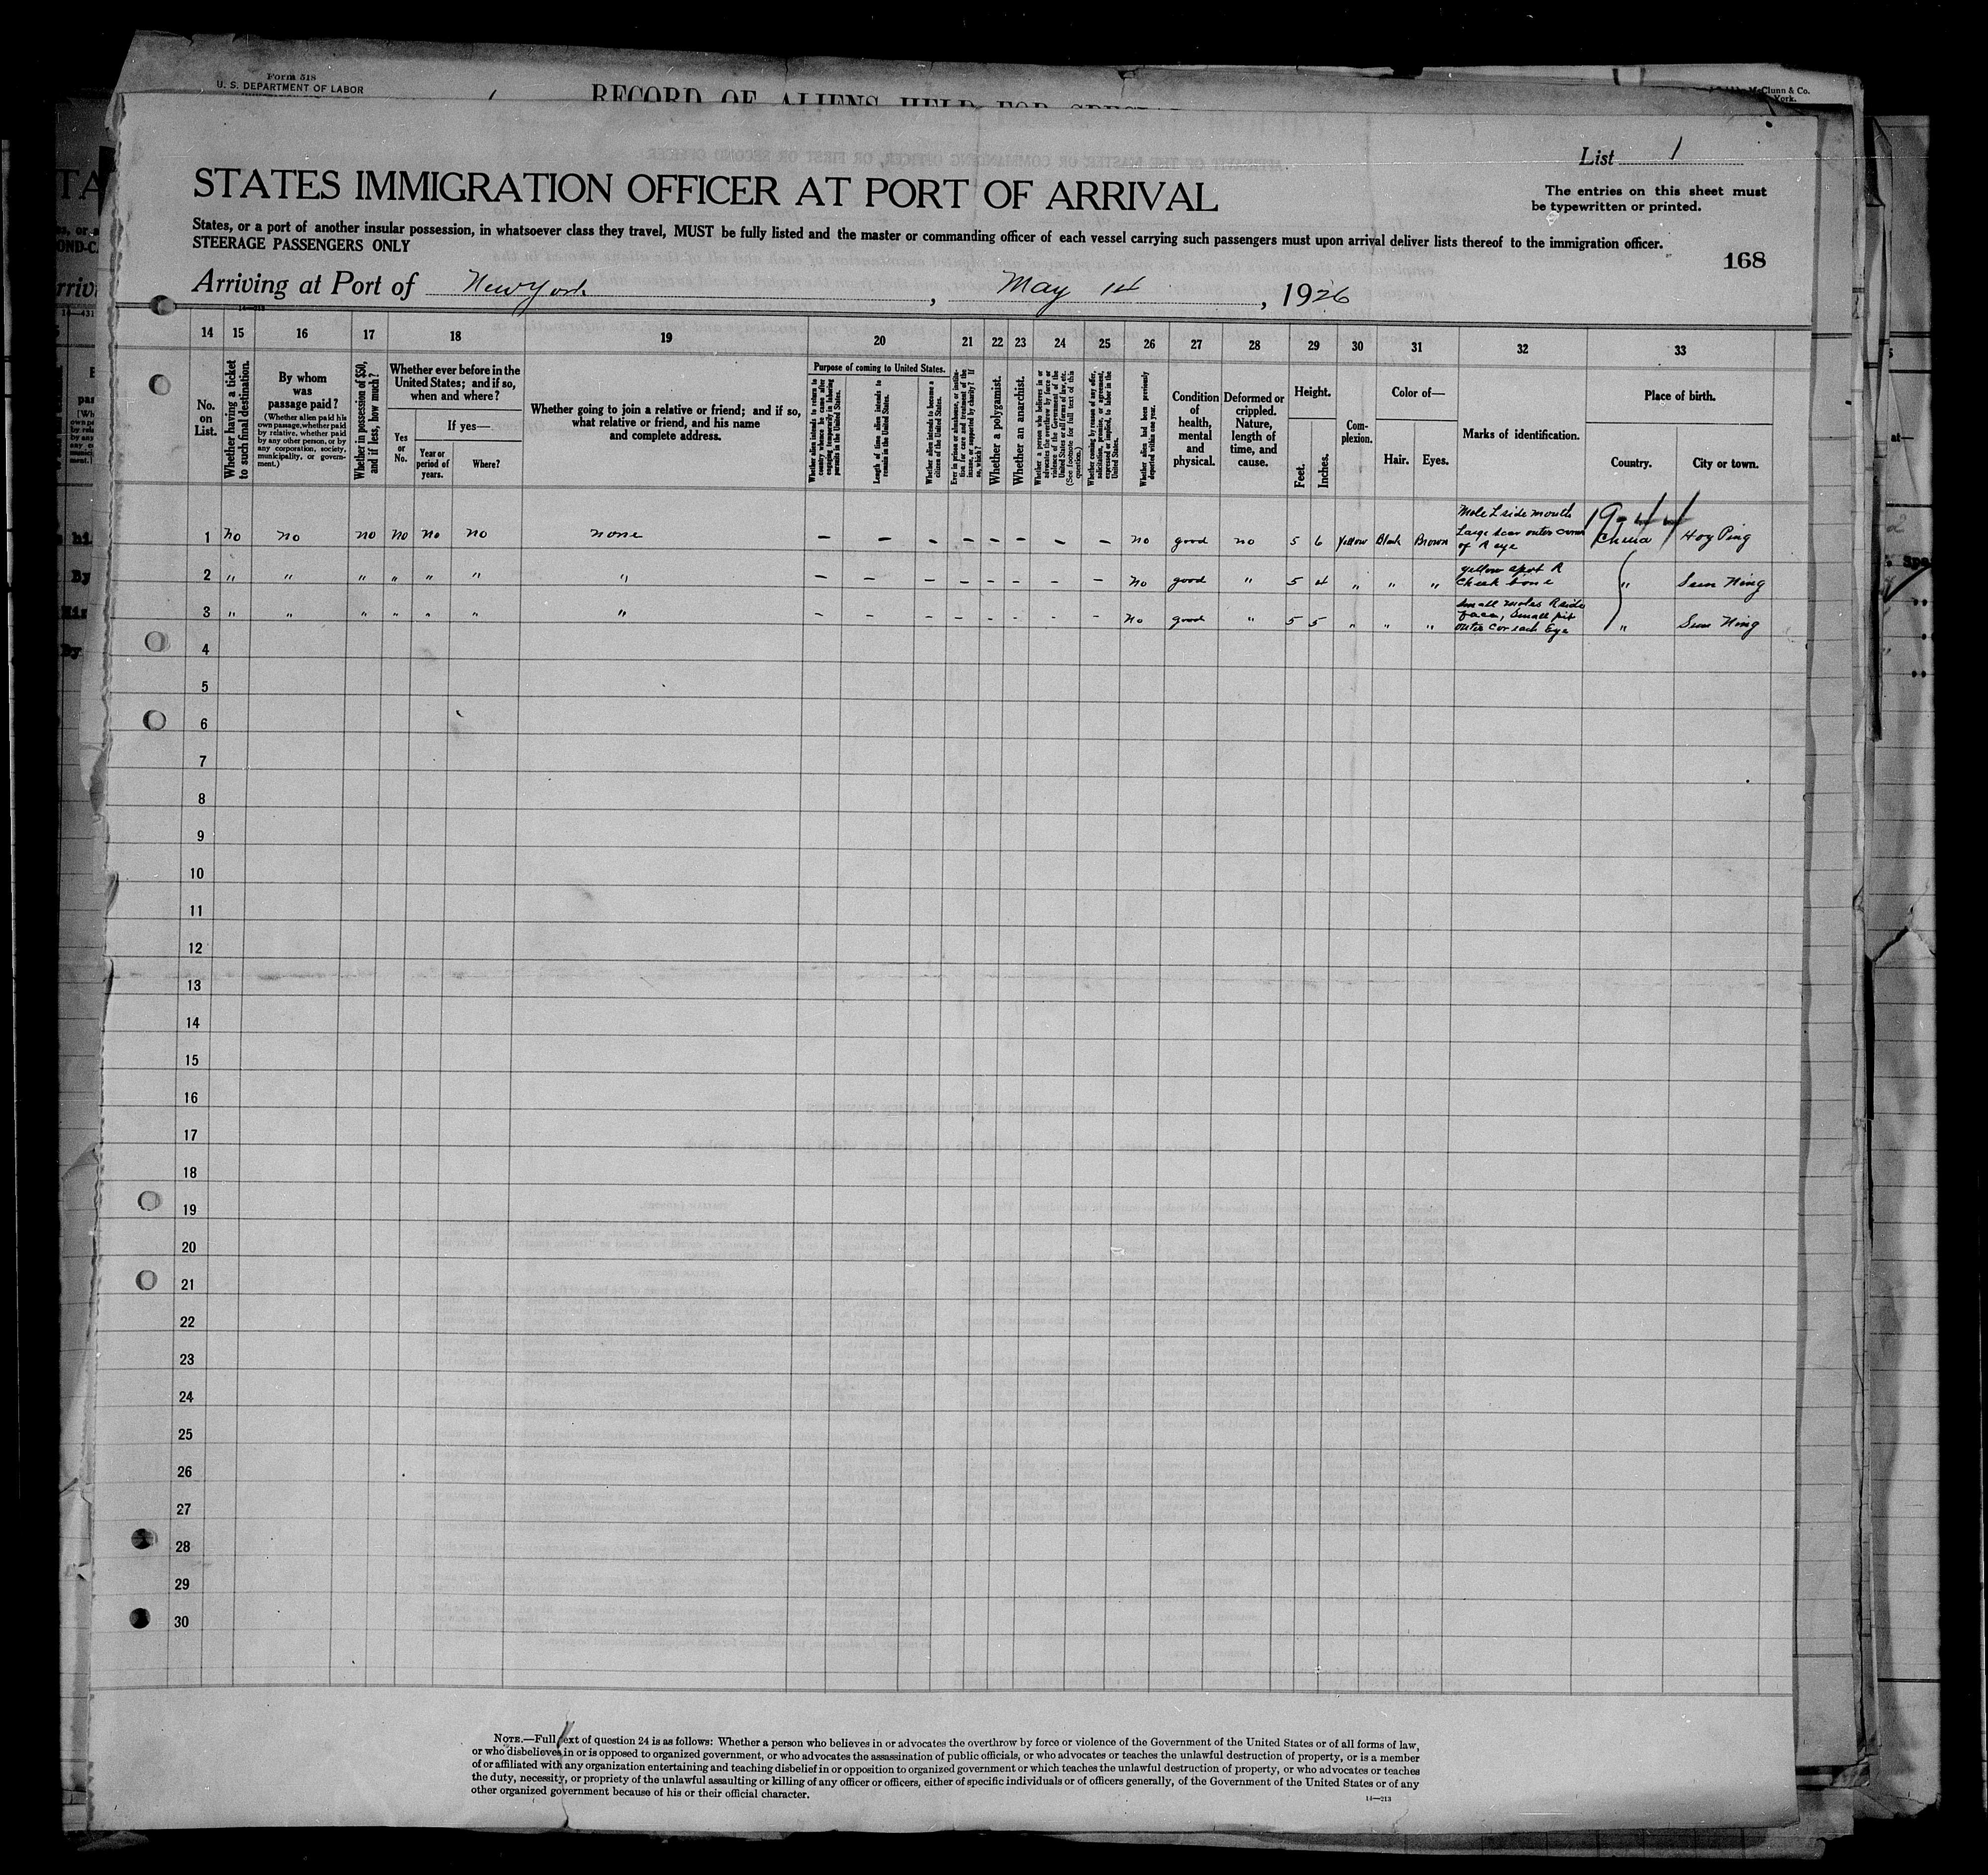 Form 518
U. S. DEPARTMENT OF LABOR
RECORD OF ALIENS HELD FOR
McClunn & Co.
York.
List 1
STATES IMMIGRATION OFFICER AT PORT OF ARRIVAL
The entries on this sheet must
be typewritten or printed.
States, or a port of another insular possession, in whatsoever class they travel, MUST be fully listed and the master or commanding officer of each vessel carrying such passengers must upon arrival deliver lists thereof to the immigration officer.
STEERAGE PASSENGERS ONLY
168
Arriving at Port of New York, May 1st, 1926
14 15 16 17 18 19 20 21 22 23 24 25 26 27 28 29 30 31 32 33
No. on List.
Whether having a ticket to such final destination.
By whom was passage paid?
(Whether alien paid his own passage, whether paid by relative, whether paid by any other person, or by any corporation, society, municipality, or government.)
Whether in possession of $50, and if less, how much?
Whether ever before in the United States; and if so, when and where?
Yes or No.
If yes—
Year or period of years.
Where?
Whether going to join a relative or friend; and if so, what relative or friend, and his name and complete address.
Purpose of coming to United States.
Whether alien intends to return to country whence he came after engaging temporarily in laboring pursuits in the United States.
Length of time alien intends to remain in the United States.
Whether alien intends to become a citizen of the United States.
Ever in prison or almshouse, or institution for care and treatment of the insane, or supported by charity? If so, which?
Whether a polygamist.
Whether an anarchist.
Whether a person who believes in or advocates the overthrow by force or violence of the Government of the United States or all forms of law, etc. (See footnote for full text of this question.)
Whether coming by reason of any offer, solicitation, promise, or agreement, expressed or implied, to labor in the United States.
Whether alien had been previously deported within one year.
Condition of health, mental and physical.
Deformed or crippled. Nature, length of time, and cause.
Height.
Feet.
Inches.
Complexion.
Color of—
Hair.
Eyes.
Marks of identification.
Place of birth.
Country.
City or town.
1 no no no no no no none — — — — — — — — no good no 5 6 Yellow Black Brown Mole L side mouth Large scar outer corner of R eye China Hoy Ping
2 " " " " " " " — — — — — — — — no good " 5 4 " " " yellow spot R cheek bone " Sun Ning
3 " " " " " " " — — — — — — — — no good " 5 5 " " " small moles R side face, small pit outer cor each Eye " Sun Ning
4
5
6
7
8
9
10
11
12
13
14
15
16
17
18
19
20
21
22
23
24
25
26
27
28
29
30
NOTE.—Full text of question 24 is as follows: Whether a person who believes in or advocates the overthrow by force or violence of the Government of the United States or of all forms of law,
or who disbelieves in or is opposed to organized government, or who advocates the assassination of public officials, or who advocates or teaches the unlawful destruction of property, or is a member
of or affiliated with any organization entertaining and teaching disbelief in or opposition to organized government or which teaches the unlawful destruction of property, or who advocates or teaches
the duty, necessity, or propriety of the unlawful assaulting or killing of any officer or officers, either of specific individuals or of officers generally, of the Government of the United States or of any
other organized government because of his or their official character.
14—213